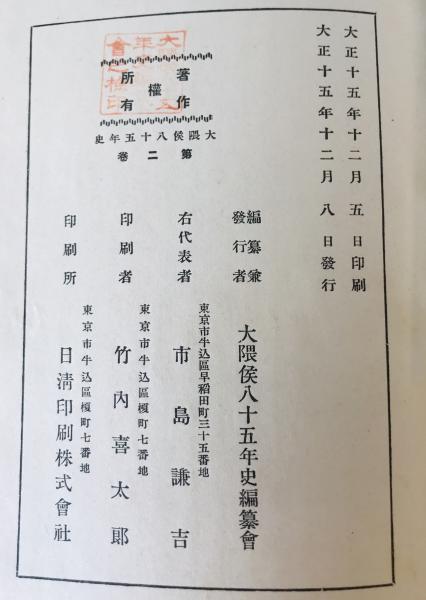 大正十五年十二月五日印刷
大正十五年十二月八日發行
著作
權
所有
大隈侯八十五年史
第二卷
編纂兼
發行者
大隈侯八十五年史編纂會
右代表者
東京市牛込區早稻田町三十五番地
市島謙吉
印刷者
東京市牛込區榎町七番地
竹內喜太郎
印刷所
東京市牛込區榎町七番地
日淸印刷株式會社